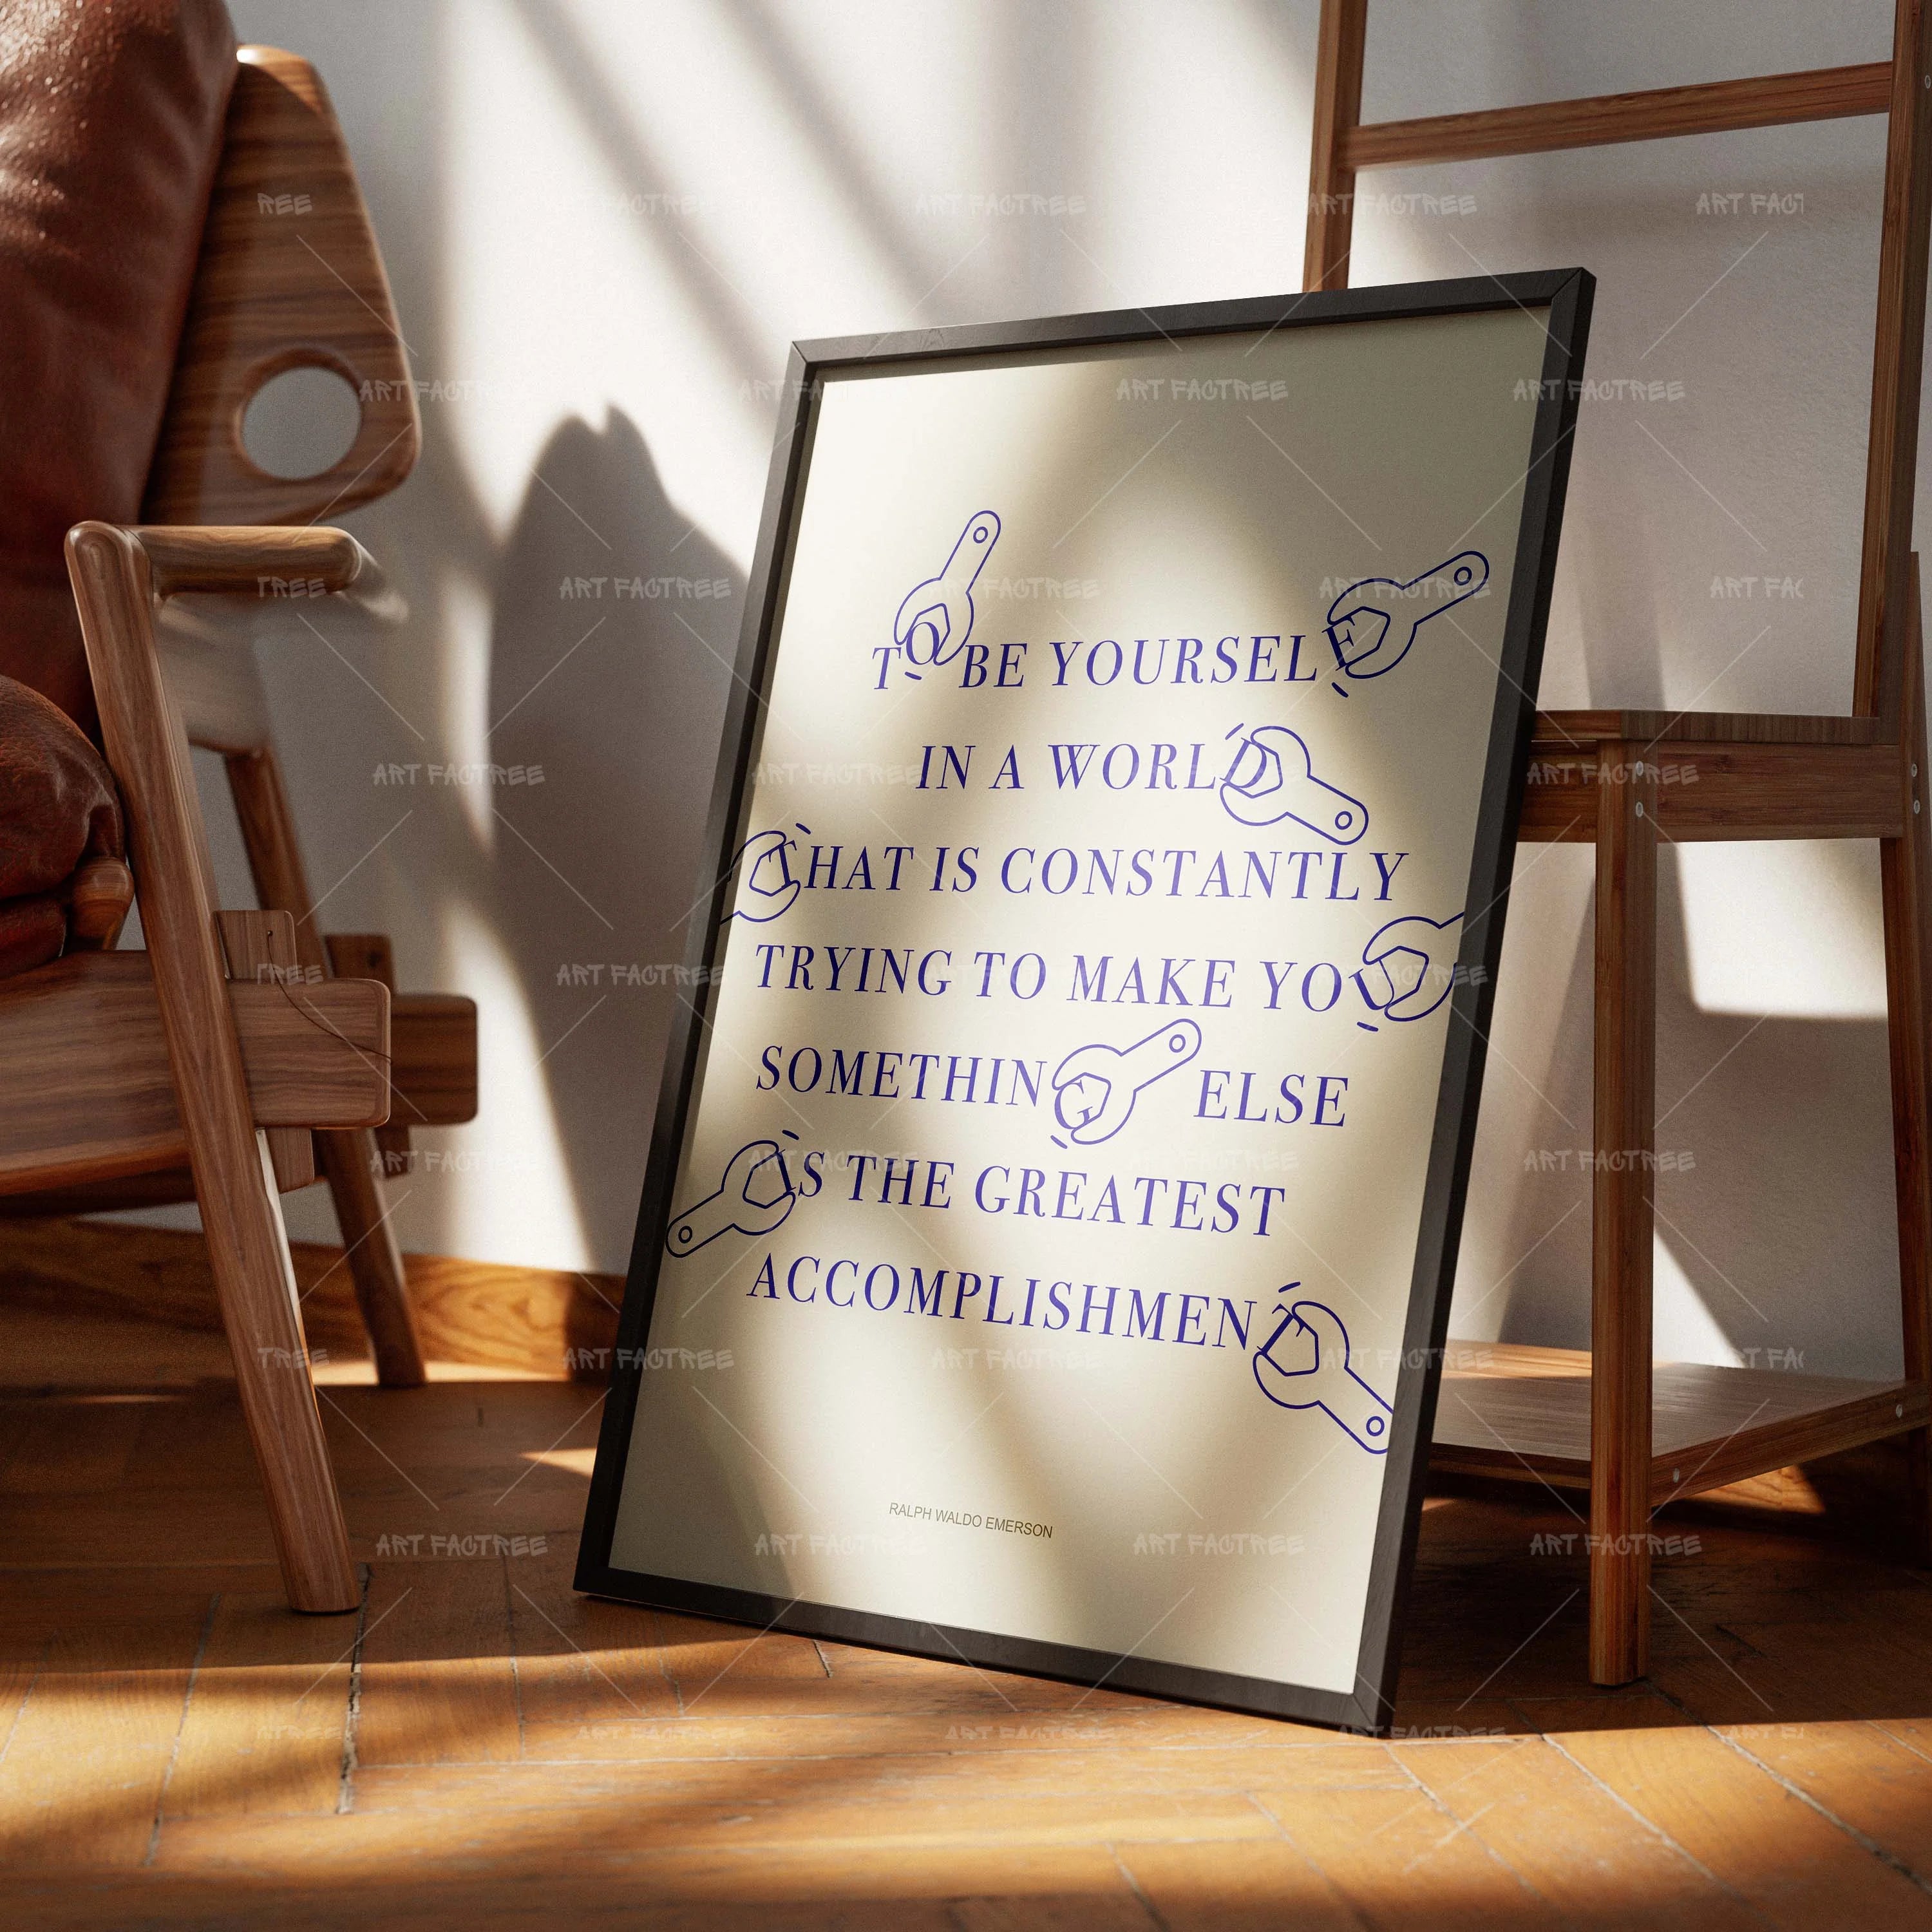 TO BE YOURSELF
IN A WORLD
THAT IS CONSTANTLY
TRYING TO MAKE YOU
SOMETHING ELSE
IS THE GREATEST
ACCOMPLISHMENT
RALPH WALDO EMERSON
ART FACTREE